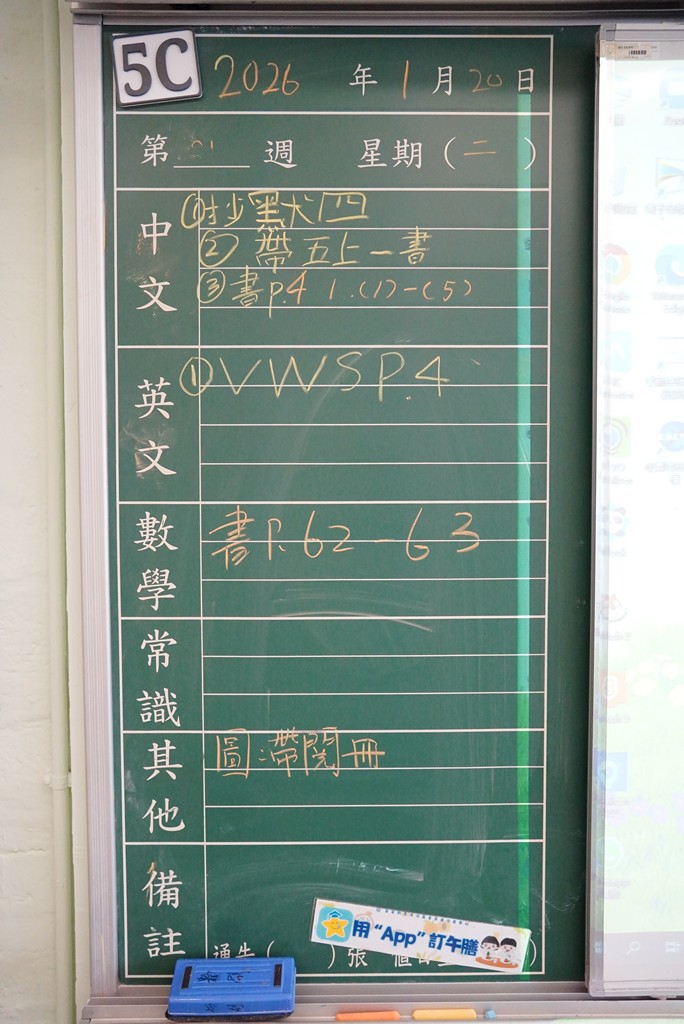 5C 2026 年 1 月 20 日
第 21 週 星期（二）
中文
①抄默四
②帶五上一書
③書p.4 1.(1)-(5)
英文
①VWSP.4
數學
書P.62-63
常識
其他
圖:帶閱冊
備註
通告( )張
用“App”訂午膳